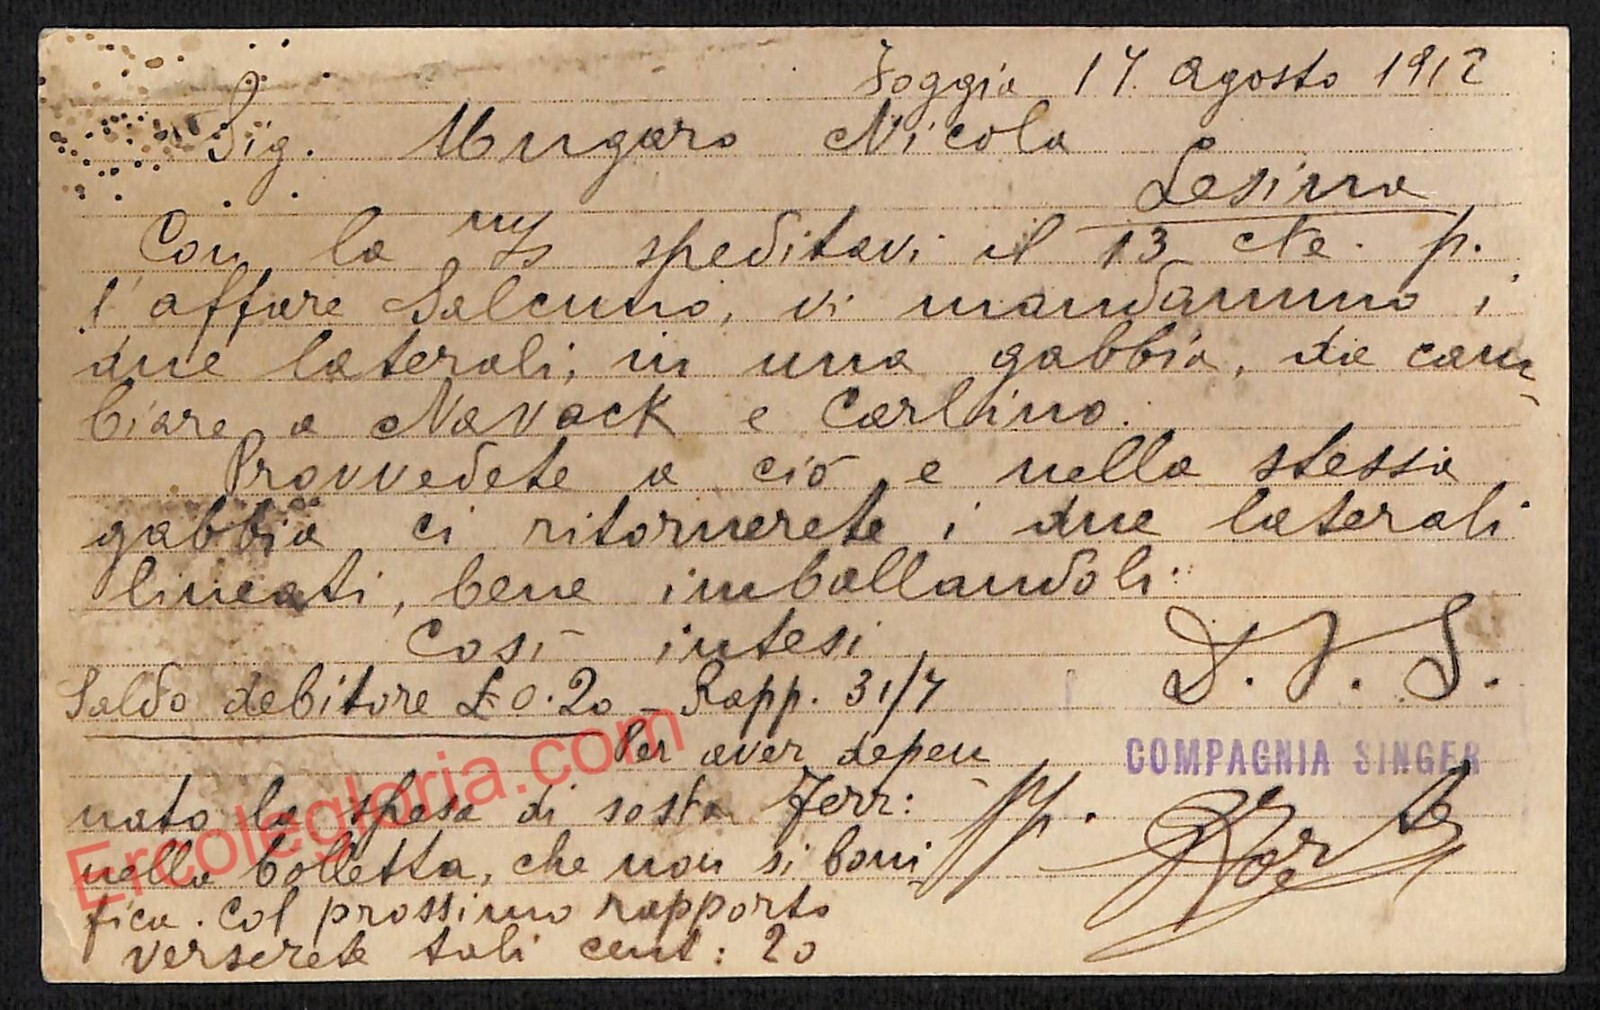 Foggia 17 Agosto 1912
Sig. Mungaro Nicola
Lesina
Con la n/s speditavi il 13 cte. p.
l'affare Salcuno, vi mandammo i
due laterali, in una gabbia, da cam-
biare a Navack e Carlino.
Provvedete a ciò e nella stessa
gabbia ci ritornerete i due laterali
lineati, bene imballandoli.
Così intesi
D. V. S.
Saldo debitore £ 0.20 - Rapp. 31/7
Per aver depen-
COMPAGNIA SINGER
nato la spesa di sosta Ferr:
pp.
nella bolletta, che non si boni-
fica. Col prossimo rapporto
verserete tali cent: 20
Ercolegloria.com